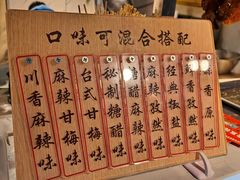 口味可混合搭配
川香麻辣味
麻辣甘梅味
台式甘梅味
秘制糖醋味
糖醋麻辣味
麻辣孜然味
經典椒鹽味
孜然味
原味